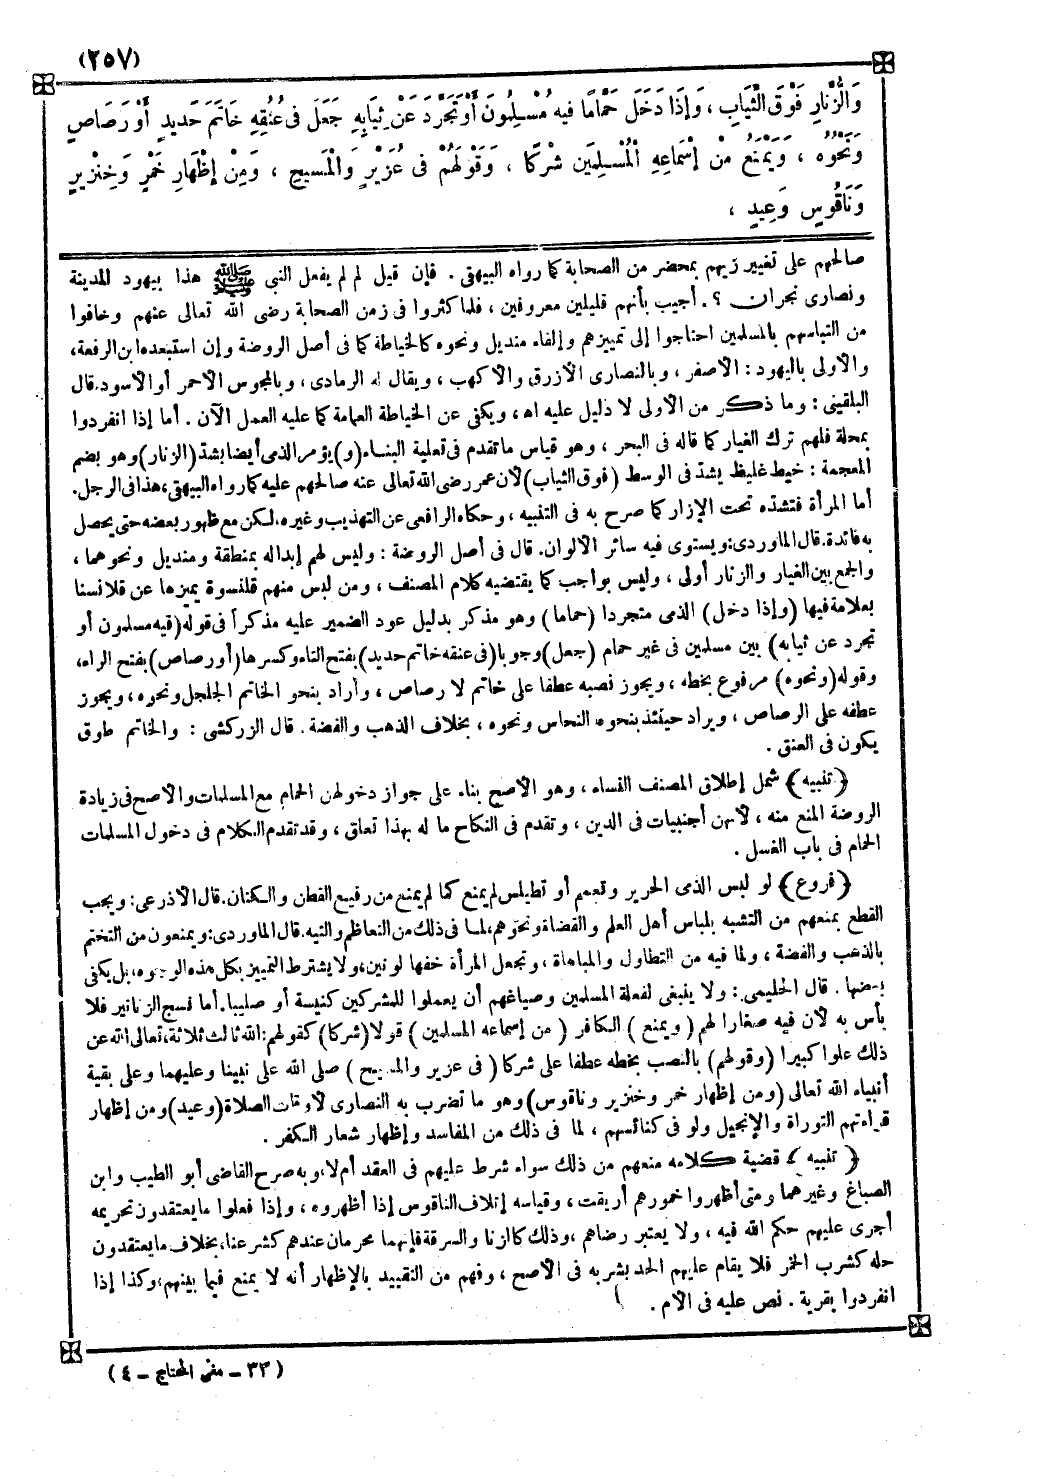 (٢٥٧)
وَالزُّنَّارِ فَوْقَ الثِّيَابِ ، وَإِذَا دَخَلَ حَمَّامًا فِيهِ مُسْلِمُونَ أَوْ تَجَرَّدَ عَنْ ثِيَابِهِ جَعَلَ فِى عُنُقِهِ خَاتَمَ حَدِيدٍ أَوْ رَصَاصٍ
وَنَحْوُهُ ، وَيُمْنَعُ مِنْ إِسْمَاعِهِ الْمُسْلِمِينَ شِرْكًا ، وَقَوْلَهُمْ فِى عُزَيْرٍ وَالْمَسِيحِ ، وَمِنْ إِظْهَارِ خَمْرٍ وَخِنْزِيرٍ
وَنَاقُوسٍ وَعِيدٍ ،
صالحهم على تغيير زيهم بمحضر من الصحابة كما رواه البيهقى . فإن قيل لم لم يفعل النبى ﷺ هذا بيهود المدينة
ونصارى نجران ؟ . أجيب بأنهم قليلين معروفين ، فلما كثروا فى زمن الصحابة رضى الله تعالى عنهم وخافوا
من التباسهم بالمسلمين احتاجوا إلى تمييزهم وإلقاء منديل ونحوه كالخياطة كما فى أصل الروضة وإن استبعده ابن الرفعة،
والأولى باليهود : الأصفر ، وبالنصارى الأزرق والأكهب ، ويقال له الرمادى ، وبالمجوس الأحمر أو الأسود.قال
البلقينى : وما ذكر من الأولى لا دليل عليه اه ، ويكفى عن الخياطة العمامة كما عليه العمل الآن . أما إذا انفردوا
بمحلة فلهم ترك الغيار كما قاله فى البحر ، وهو قياس ماتقدم فى تعلية البناء (و) يؤمر الذمى أيضا بشد (الزنار) وهو بضم
المعجمة : خيط غليظ يشد فى الوسط (فوق الثياب) لأن عمر رضى الله تعالى عنه صالحهم عليه كما رواه البيهقى، هذا فى الرجل.
أما المرأة فتشده تحت الإزار كما صرح به فى التنبيه ، وحكاه الرافعى عن التهذيب وغيره، لكن مع ظهور بعضه حتى يحصل
به فائدة.قال الماوردى: ويستوى فيه سائر الألوان. قال فى أصل الروضة : وليس لهم إبداله بمنطقة ومنديل ونحوهما ،
والجمع بين الغيار والزنار أولى ، وليس بواجب كما يقتضيه كلام المصنف ، ومن لبس منهم قلنسوة يميزها عن قلانسنا
بعلامة فيها (وإذا دخل) الذمى متجردا (حماما) وهو مذكر بدليل عود الضمير عليه مذكرا فى قوله (فيه مسلمون أو
تجرد عن ثيابه) بين مسلمين فى غير حمام (جعل) وجوبا (فى عنقه خاتم حديد) بفتح التاء وكسرها (أو رصاص) بفتح الراء،
وقوله (ونحوه) مرفوع بخطه ، ويجوز نصبه عطفا على خاتم لا رصاص ، وأراد بنحو الخاتم الجلجل ونحوه، ويجوز
عطفه على الرصاص ، ويراد حينئذ بنحوه النحاس ونحوه ، بخلاف الذهب والفضة . قال الزركشى : والخاتم طوق
يكون فى العنق .
﴿ تنبيه ﴾ شمل إطلاق المصنف النساء ، وهو الأصح بناء على جواز دخولهن الحمام مع المسلمات والأصح فى زيادة
الروضة المنع منه ، لأنهن أجنبيات فى الدين ، وتقدم فى النكاح ما له بهذا تعلق ، وقد تقدم الكلام فى دخول المسلمات
الحمام فى باب الغسل .
﴿ فروع ﴾ لو لبس الذمى الحرير وتعمم أو تطيلس لم يمنع كما لم يمنع من رفيع القطن والكتان.قال الأذرعى: ويجب
القطع بمنعهم من التشبه بلباس أهل العلم والقضاة ونحوهم، لما فى ذلك من التعاظم والتيه.قال الماوردى: ويمنعون من التختم
بالذهب والفضة ، ولما فيه من التطاول والمباهاة ، وتجعل المرأة خفها لونين، ولا يشترط التمييز بكل هذه الوجوه، بل يكفى
بعضها . قال الحليمى : ولا ينبغى لفعلة المسلمين وصياغهم أن يعملوا للمشركين كنيسة أو صليبا.أما نسج الزنانير فلا
بأس به لأن فيه صغارا لهم (ويمنع) الكافر ( من إسماعه المسلمين ) قولا (شركا) كقولهم: الله ثالث ثلاثة، تعالى الله عن
ذلك علوا كبيرا (وقولهم) بالنصب بخطه عطفا على شركا ( فى عزير والمسيح ) صلى الله على نبينا وعليهما وعلى بقية
أنبياء الله تعالى (ومن إظهار خمر وخنزير وناقوس) وهو ما تضرب به النصارى لأوقات الصلاة (وعيد) ومن إظهار
قراءتهم التوراة والإنجيل ولو فى كنائسهم ، لما فى ذلك من المفاسد وإظهار شعار الكفر .
﴿ تنبيه ﴾ قضية كلامه منعهم من ذلك سواء شرط عليهم فى العقد أم لا، وبه صرح القاضى أبو الطيب وابن
الصباغ وغيرهما ومتى أظهروا خمورهم أريقت ، وقياسه إتلاف الناقوس إذا أظهروه ، وإذا فعلوا مايعتقدون تحريمه
أجرى عليهم حكم الله فيه ، ولا يعتبر رضاهم ، وذلك كالزنا والسرقة فإنهما محرمان عندهم كشرعنا، بخلاف مايعتقدون
حله كشرب الخمر فلا يقام عليهم الحد بشربه فى الأصح ، وفهم من التقييد بالإظهار أنه لا يمنع فيما بينهم، وكذا إذا
انفردوا بقرية . نص عليه فى الأم .
( ٣٣ - مغنى المحتاج - ٤ )